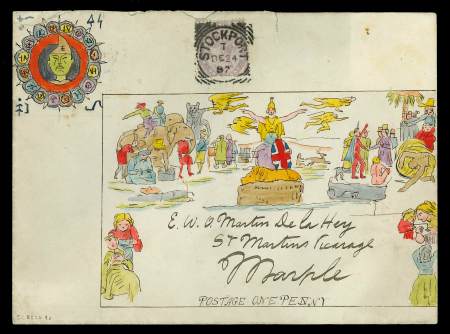 44
STOCKPORT
7
DE 24
87
E. W. A. Martin De la Hey
St Martins Vicarage
Marple
POSTAGE ONE PENNY